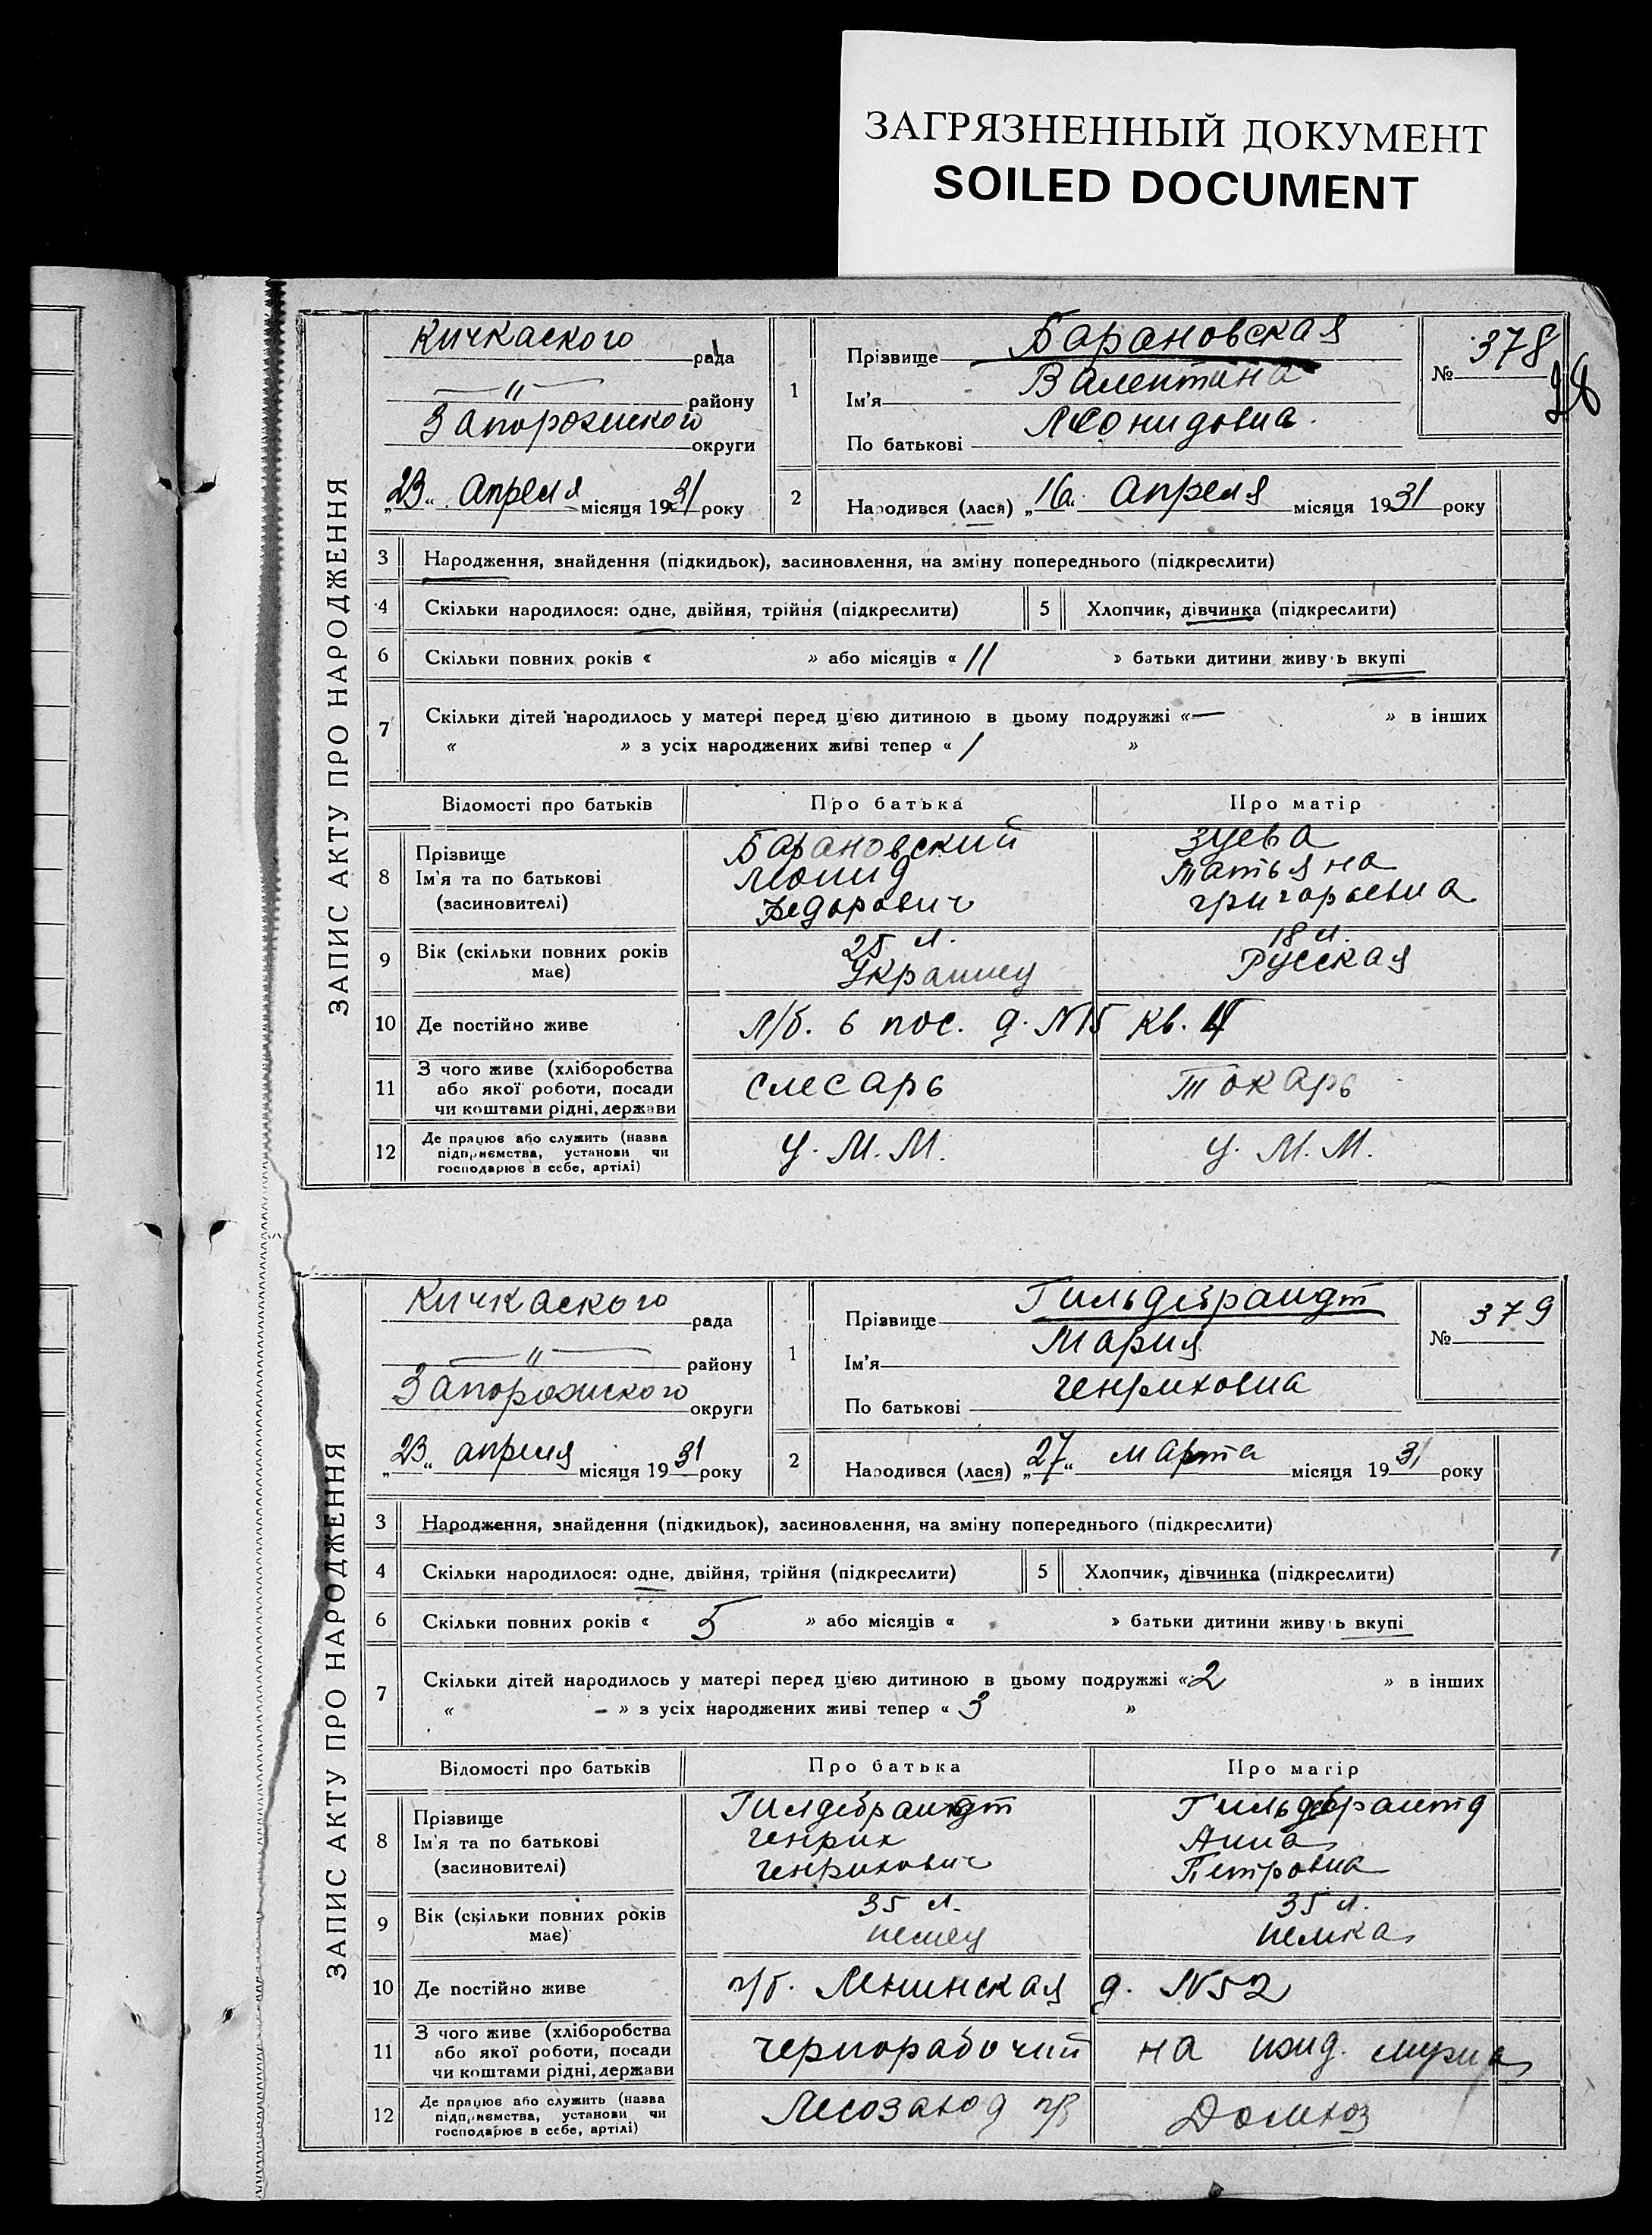 ЗАГРЯЗНЕННЫЙ ДОКУМЕНТ
SOILED DOCUMENT
ЗАПИС АКТУ ПРО НАРОДЖЕННЯ
Кичкаского рада
—〃— району
Запорожского округи
„23“ Апреля місяця 1931 року
1
Прізвище Барановская
Ім'я Валентина
По батькові Леонидовна.
№ 378
98
2 Народився (лася) „16“ Апреля місяця 1931 року
3 Народження, знайдення (підкидьок), засиновлення, на зміну попереднього (підкреслити)
4 Скільки народилося: одне, двійня, трійня (підкреслити) 5 Хлопчик, дівчинка (підкреслити)
6 Скільки повних років « » або місяців « 11 » батьки дитини живуть вкупі
7 Скільки дітей народилось у матері перед цією дитиною в цьому подружжі «— » в інших
« » з усіх народжених живі тепер « 1 »
Відомості про батьків Про батька Про матір
8 Прізвище Ім'я та по батькові (засиновителі)
Барановский Леонид Федорович
Зуева Татьяна Григорьевна
9 Вік (скільки повних років має)
25 л. Украинец
18 л. Русская
10 Де постійно живе Л/б. 6 пос. д. №15 кв.
11 З чого живе (хліборобства або якої роботи, посади чи коштами рідні, держави
слесарь токарь
12 Де працює або служить (назва підприємства, установи чи господарює в себе, артілі)
У. М. М. У. М. М.
ЗАПИС АКТУ ПРО НАРОДЖЕННЯ
Кичкаского рада
—〃— району
Запорожского округи
„23“ апреля місяця 1931 року
1
Прізвище Гильдебрандт
Ім'я Мария
По батькові Генриховна
№ 379
2 Народився (лася) „27“ марта місяця 1931 року
3 Народження, знайдення (підкидьок), засиновлення, на зміну попереднього (підкреслити)
4 Скільки народилося: одне, двійня, трійня (підкреслити) 5 Хлопчик, дівчинка (підкреслити)
6 Скільки повних років « 5 » або місяців « » батьки дитини живуть вкупі
7 Скільки дітей народилось у матері перед цією дитиною в цьому подружжі «2 » в інших
« – » з усіх народжених живі тепер « 3 »
Відомості про батьків Про батька Про матір
8 Прізвище Ім'я та по батькові (засиновителі)
Гилдебрандт Генрих Генрихович
Гильдебрантд Анна Петровна
9 Вік (скільки повних років має)
35 л. немец
35 л. немка
10 Де постійно живе п/б. Ленинская д. №52
11 З чого живе (хліборобства або якої роботи, посади чи коштами рідні, держави
чернорабочий на ижд. мужа
12 Де працює або служить (назва підприємства, установи чи господарює в себе, артілі)
Лесозавод Домхоз